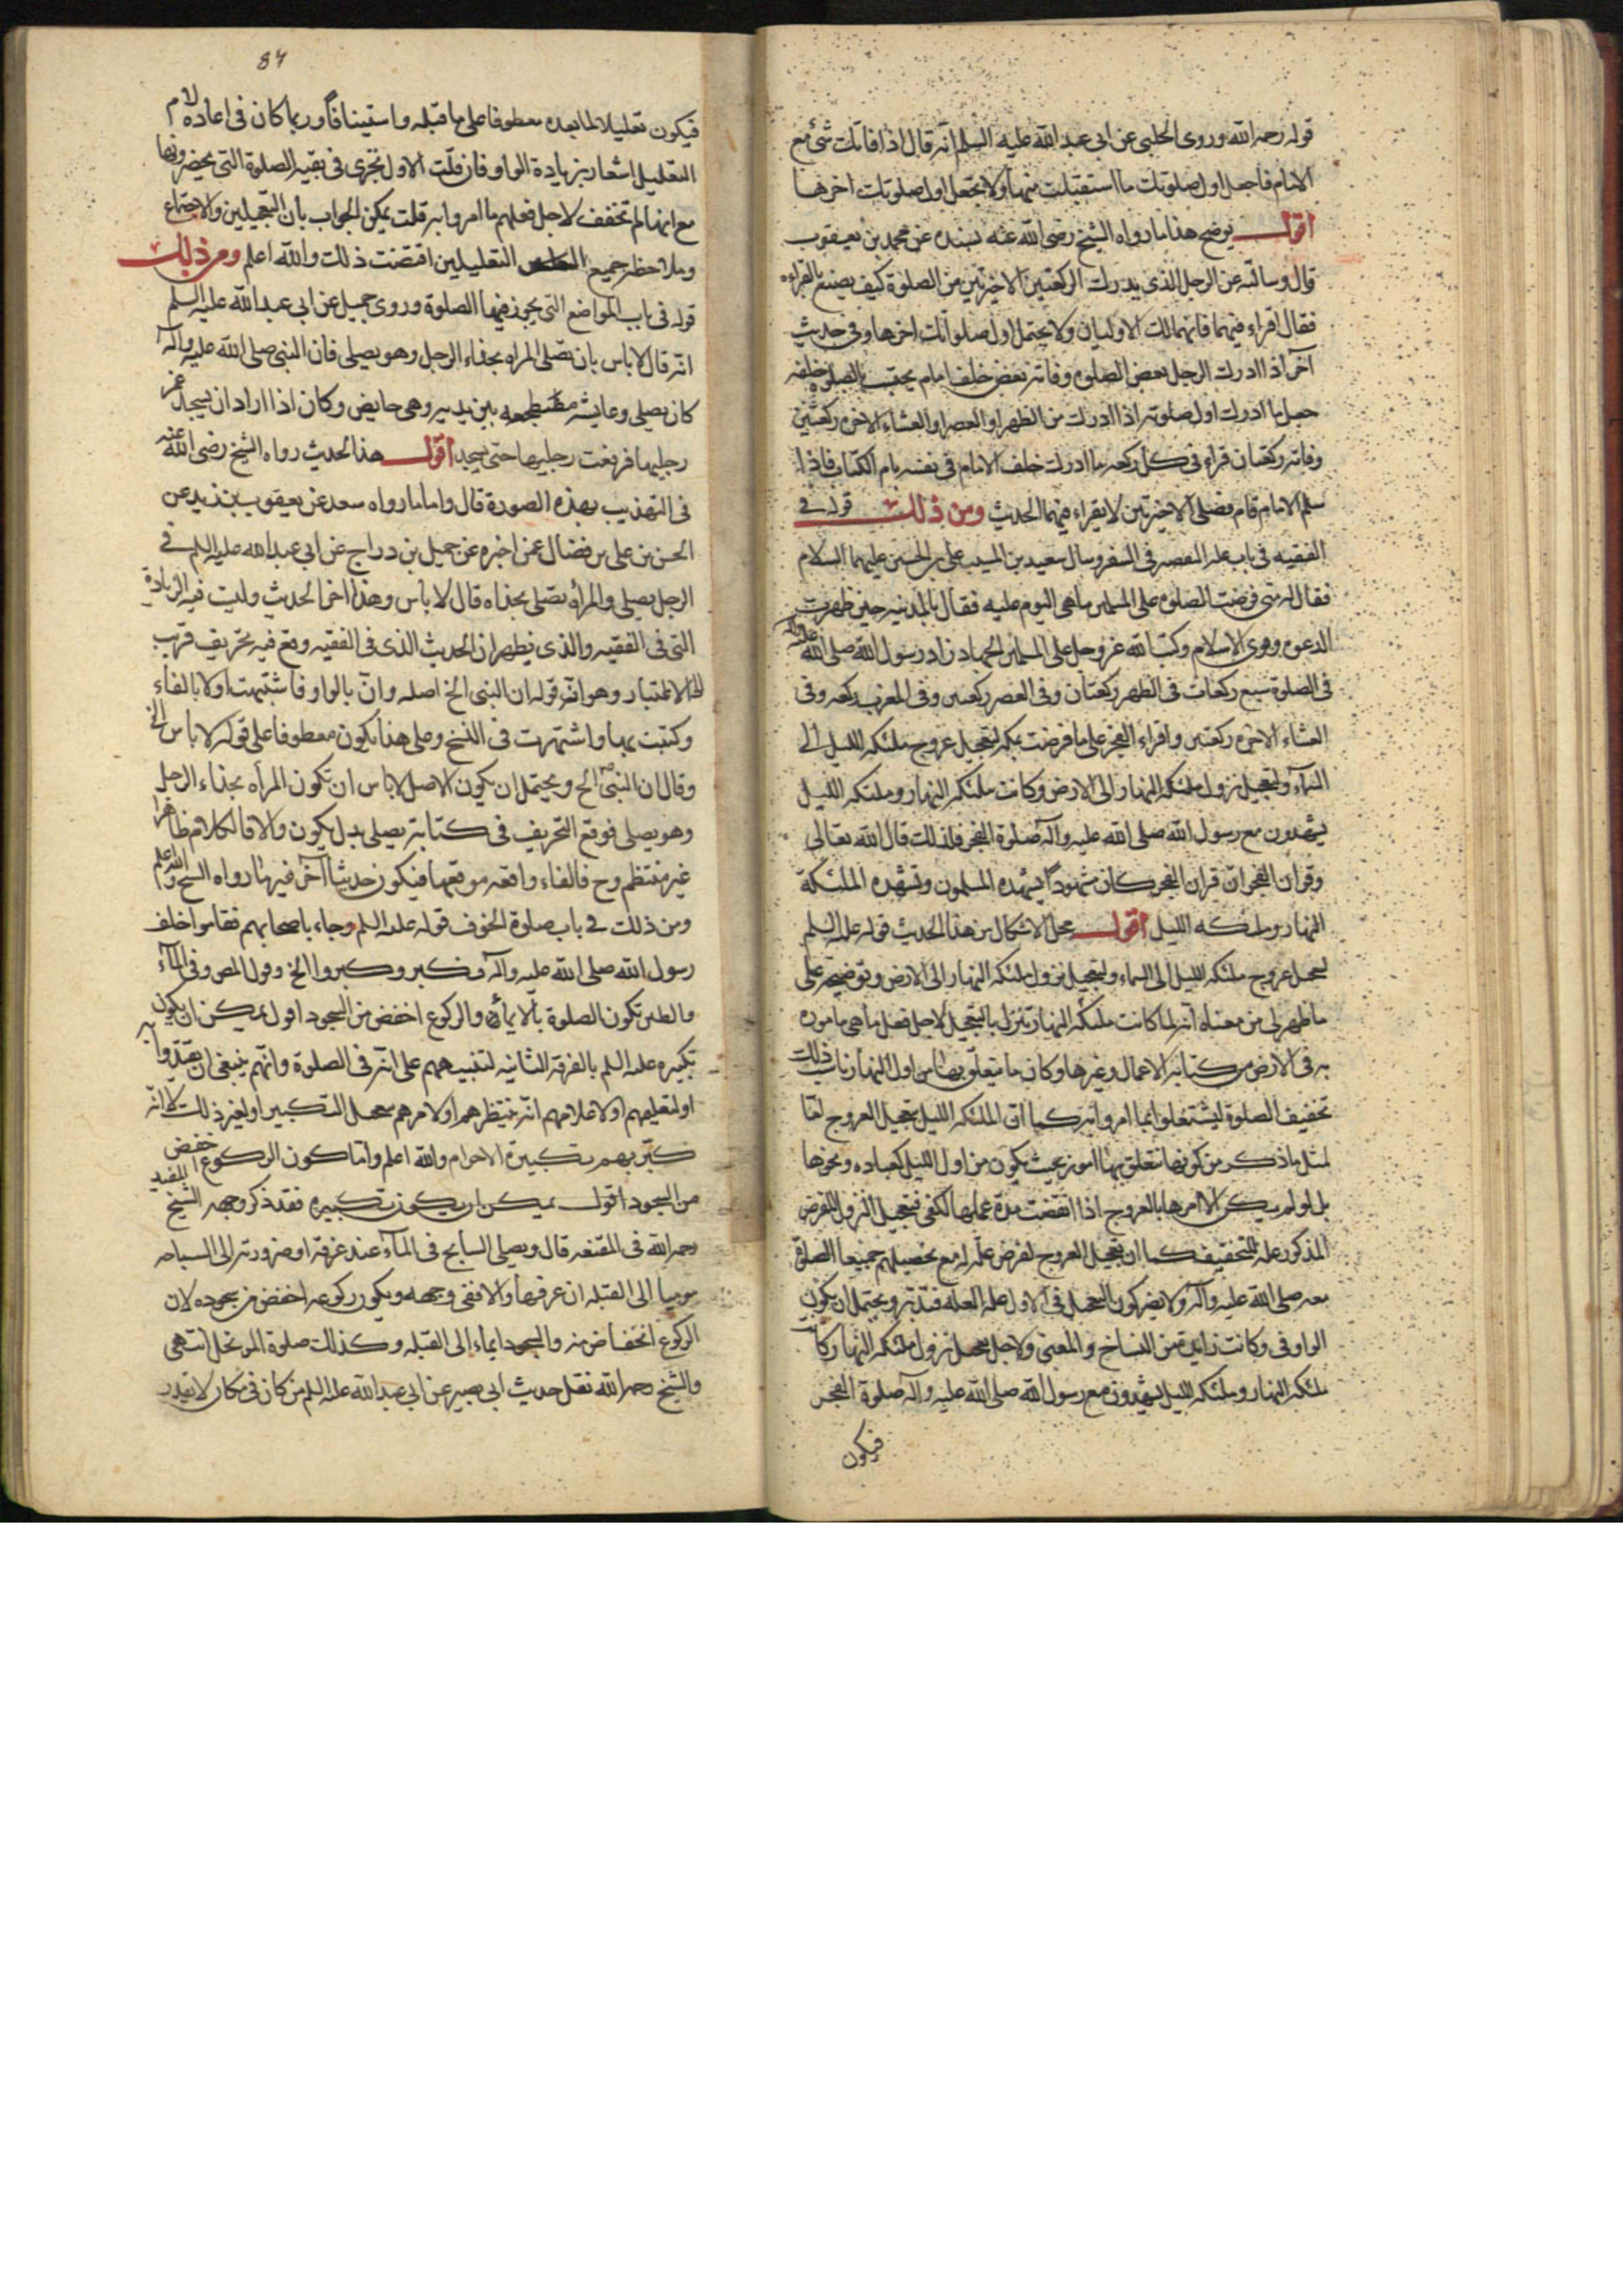 قوله رحمه الله وروى الحلبى عن ابى عبد الله عليه السلم انه قال اذا فاتك شئ مع
الامام فاجعل اول صلوتك ما استقبلت منها ولا تجعل اول صلوتك اخرها
اقول يوضح هذا ما رواه الشيخ رضى الله عنه بسنده عن محمد بن يعقوب
قال وسالته عن الرجل الذى يدرك الركعتين الاخيرتين من الصلوة كيف يصنع بالقراءه
فقال اقراء فيهما فانهما لك الاوليان ولا يجتمل اول صلواتك اخرها وفى حديث
آخر اذا ادرك الرجل بعض الصلوه وفاته بعض خلف امام يحتسب بالصلوه خلفه
جعل ما ادرك اول صلوته اذا ادرك من الظهر او العصر او العشاء الاخره ركعتين
وفاته ركعتان قراء فى كل ركعه مما ادرك خلف الامام فى نفسه بام الكتاب فاذا
سلم الامام قام فصلى الاخيرتين لا يقراء فيهما الحديث ومن ذلك قوله فى
الفقيه فى باب علة التقصير فى السفر وسال سعيد بن المسيب على بن الحسين عليهما السلام
فقال له متى فرضت الصلوه على المسلمين ما هى اليوم عليه فقال بالمدينه حين ظهرت
الدعوه وقوى الاسلام وكتب الله عز وجل على المسلمين الجهاد زاد رسول الله صلى الله عليه وآله
فى الصلوة سبع ركعات فى الظهر ركعتان وفى العصر ركعتين وفى المغرب ركعه وفى
العشاء الاخره ركعتين واقراء الفجر على ما فرضت بمكه لتعجيل عروج ملئكه الليل الى
السماء ولتعجيل نزول ملئكه النهار الى الارض وكانت ملئكه النهار وملئكه الليل
يشهدون مع رسول الله صلى الله عليه وآله صلوة الفجر فلذلك قال الله تعالى
وقرآن الفجر ان قران الفجر كان مشهوداً يشهده المسلمون وتشهده الملئكة
النهار وملئكه الليل اقول محل الاشكال من هذا الحديث قوله عليه السلم
لتعجيل عروج ملئكه الليل الى السماء ولتعجيل نزول ملئكه النهار الى الارض وتوضيحه على
ما ظهر لى من معناه انه لما كانت ملئكه النهار تنزل بالتعجيل لاجل فعل ما هى ماموره
به فى الارض من كتابة الاعمال وغيرها وكان ما يتعلق بها من اول النهار ناسب ذلك
تخفيف الصلوة ليشتغلوا بما امروا به كما ان الملئكه الليل تعجيل العروج لها
لمثل ما ذكر من كونها تتعلق بها امور بحيث يكون من اول الليل كعباده ونحوها
بل لو لم يكن الا امرها بالعروج اذا انقضت مدة عملها لكفى فتعجيل النزول للغرض
المذكور علة للتخفيف كما ان تعجيل العروج لغرض علة له مع تحصيلهم جميعا الصلوة
معه صلى الله عليه وآله ولا يضر كون التعجيل فى الاول علة العله فتدبر ويحتمل ان يكون
الواو فى وكانت زايدة من النساخ والمعنى ولاجل تعجيل نزول ملئكه النهار كانت
ملئكه النهار وملئكه الليل يشهدون مع رسول الله صلى الله عليه وآله صلوة الفجر
فيكون
87
فيكون تعليلا لما بعده معطوفا على ما قبله واستينافا وربما كان فى اعاده لام
التعليل اشعار بزيادة الواو فان قلت الاول تجرى فى بقيه الصلوة التى يحضرونها
مع انها لم تخفف لاجل فعلهم ما امروا به قلت يمكن الجواب بان التعجيلين والاجتماع
وملاحظه جميع التعليلين اقتضت ذلك والله اعلم ومن ذلك
قوله فى باب المواضع التى يجوز فيها الصلوة وروى جميل عن ابى عبد الله عليه السلم
انه قال لا باس بان تصلى المراه بحذاء الرجل وهو يصلى فان النبى صلى الله عليه وآله
كان يصلى وعايشه مضطجعه بين يديه وهى حايض وكان اذا اراد ان يسجد غمز
رجليها فرفعت رجليها حتى يسجد اقول هذا الحديث رواه الشيخ رضى الله عنه
فى التهذيب بهذه الصورة قال واما ما رواه سعد عن يعقوب بن يزيد عن
الحسن بن على بن فضال عمن اخبره عن جميل بن دراج عن ابى عبد الله عليه السلم فى
الرجل يصلى والمرأه تصلى بحذاه قال لا باس وهذا اخر الحديث وليت فيه الزيادة
التى فى الفقيه والذى يظهر ان الحديث الذى فى الفقيه وقع فيه تحريف قريب
الى الاعتبار وهو انه قوله ان النبى الخ اصله وان بالواو فاشتبهت اولا بالفاء
وكتبت بها واشتهرت فى النسخ وعلى هذا يكون معطوفا على قوله لا باس الخ
وقال ان النبى الخ ويحتمل ان يكون الاصل لا باس ان تكون المرأه بحذاء الرجل
وهو يصلى فوقع التحريف فى كتابة يصلى بدل يكون والا فالكلام ظاهرا
غير منتظم وح فالفاء واقعه موقعها فيكون حديثا آخر غير ما رواه الشيخ والله اعلم
ومن ذلك فى باب صلوة الخوف قوله عليه السلم وجاء باصحابهم فقاموا خلف
رسول الله صلى الله عليه وآله فكبر وكبروا الخ وقول المص وفى الماء
والطين تكون الصلوة بالايماء والركوع اخفض من السجود اقول يمكن ان يكون
تكبيره عليه السلم بالفرقه الثانيه لتنبيههم على انه فى الصلوة وانهم ينبغى ان يقتدوا به
او لتعليمهم او لاعلامهم انه ينتظرهم او لامرهم بتعجيل التكبير او لغير ذلك لا انه
كبر بهم تكبيرة الاحرام والله اعلم واما كون الركوع اخفض
من السجود اقول يمكن ان يكون تكبيره فقد ذكر وجهه الشيخ المفيد
رحمه الله فى المقنعه قال ويصلى السابح فى المآء عند غرقه او ضرورته الى السباحه
موميا الى القبله ان عرفها والا ففى وجهه ويكون ركوعه اخفض من سجوده لان
الركوع انخفاض منه والسجود ايماء الى القبله وكذلك صلوة الموتحل انتهى
والشيخ رحمه الله نقل حديث ابى بصير عن ابى عبد الله عليه السلم من كان فى مكان لا يقدر